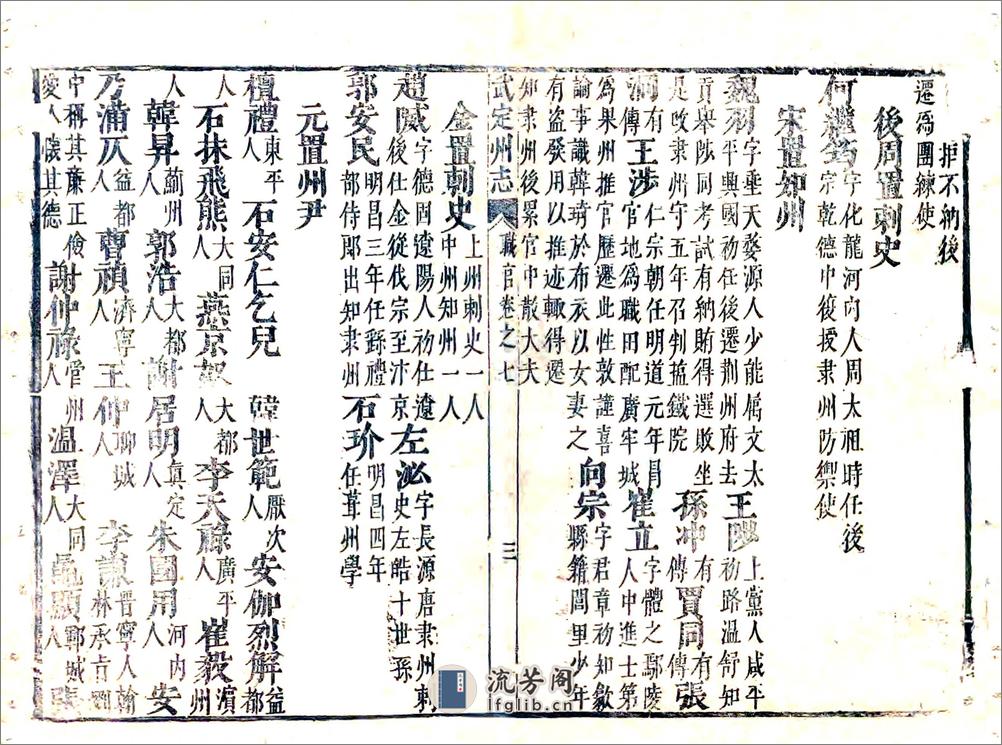 拒不納後
遷爲團練使
後周置刺史
何繼筠字化龍河向人周太祖時任後
宗乾德中後授隶州防禦使
宋置知州
魏羽字垂天婺源人少能属文太
平興國初任後遷荆州府去王陟上黨人咸平
初路温舒知
貢舉陟同考試有納賄得選敗坐
是改隶州守五年召判揾鐵院孫冲有傳賈同有傳張
有傳王涉仁宗朝任明道元年
官地爲職田配廣牢城崔立字體之鄢陵
人中進士第
爲果州推官歷遷此性敦謹喜
論事識韓琦於布衣以女妻之向宗字君章初知歙
縣籍閭里少年
有盗發用以推迹輒得遷
知隶州後累官中散大夫
武定州志 職官卷之七 三
金置朝史上州刺史一人
中州知州一人
趙威字德固遼陽人初仕遼
後仕金從伐宗至汴京左泌字長源唐隶州刺
史左皓十世孫
郭安民明昌三年任孫禮
部侍郎出知隶州石玠明昌四年
任葺州學
元置州尹
檀禮東平人 石安仁乞兒 韓世範厭次人 安伽烈解益都
人 石抹飛熊大同人 燕京奴大都人 李天祿廣平人 崔毅濵州
人 韓昇薊州人 郭浩大都人 謝居明真定人 朱國用河内人 安
乃蒲仄益都人 曹禎濟寧人 王仲聊城人 李謙晋寧人翰
林承旨劉
中稱其廉正儉
愛人懷其德謝仲祿管州人 温澤大同人 顯鄆城人 張
流芳阁
lfglib.cn